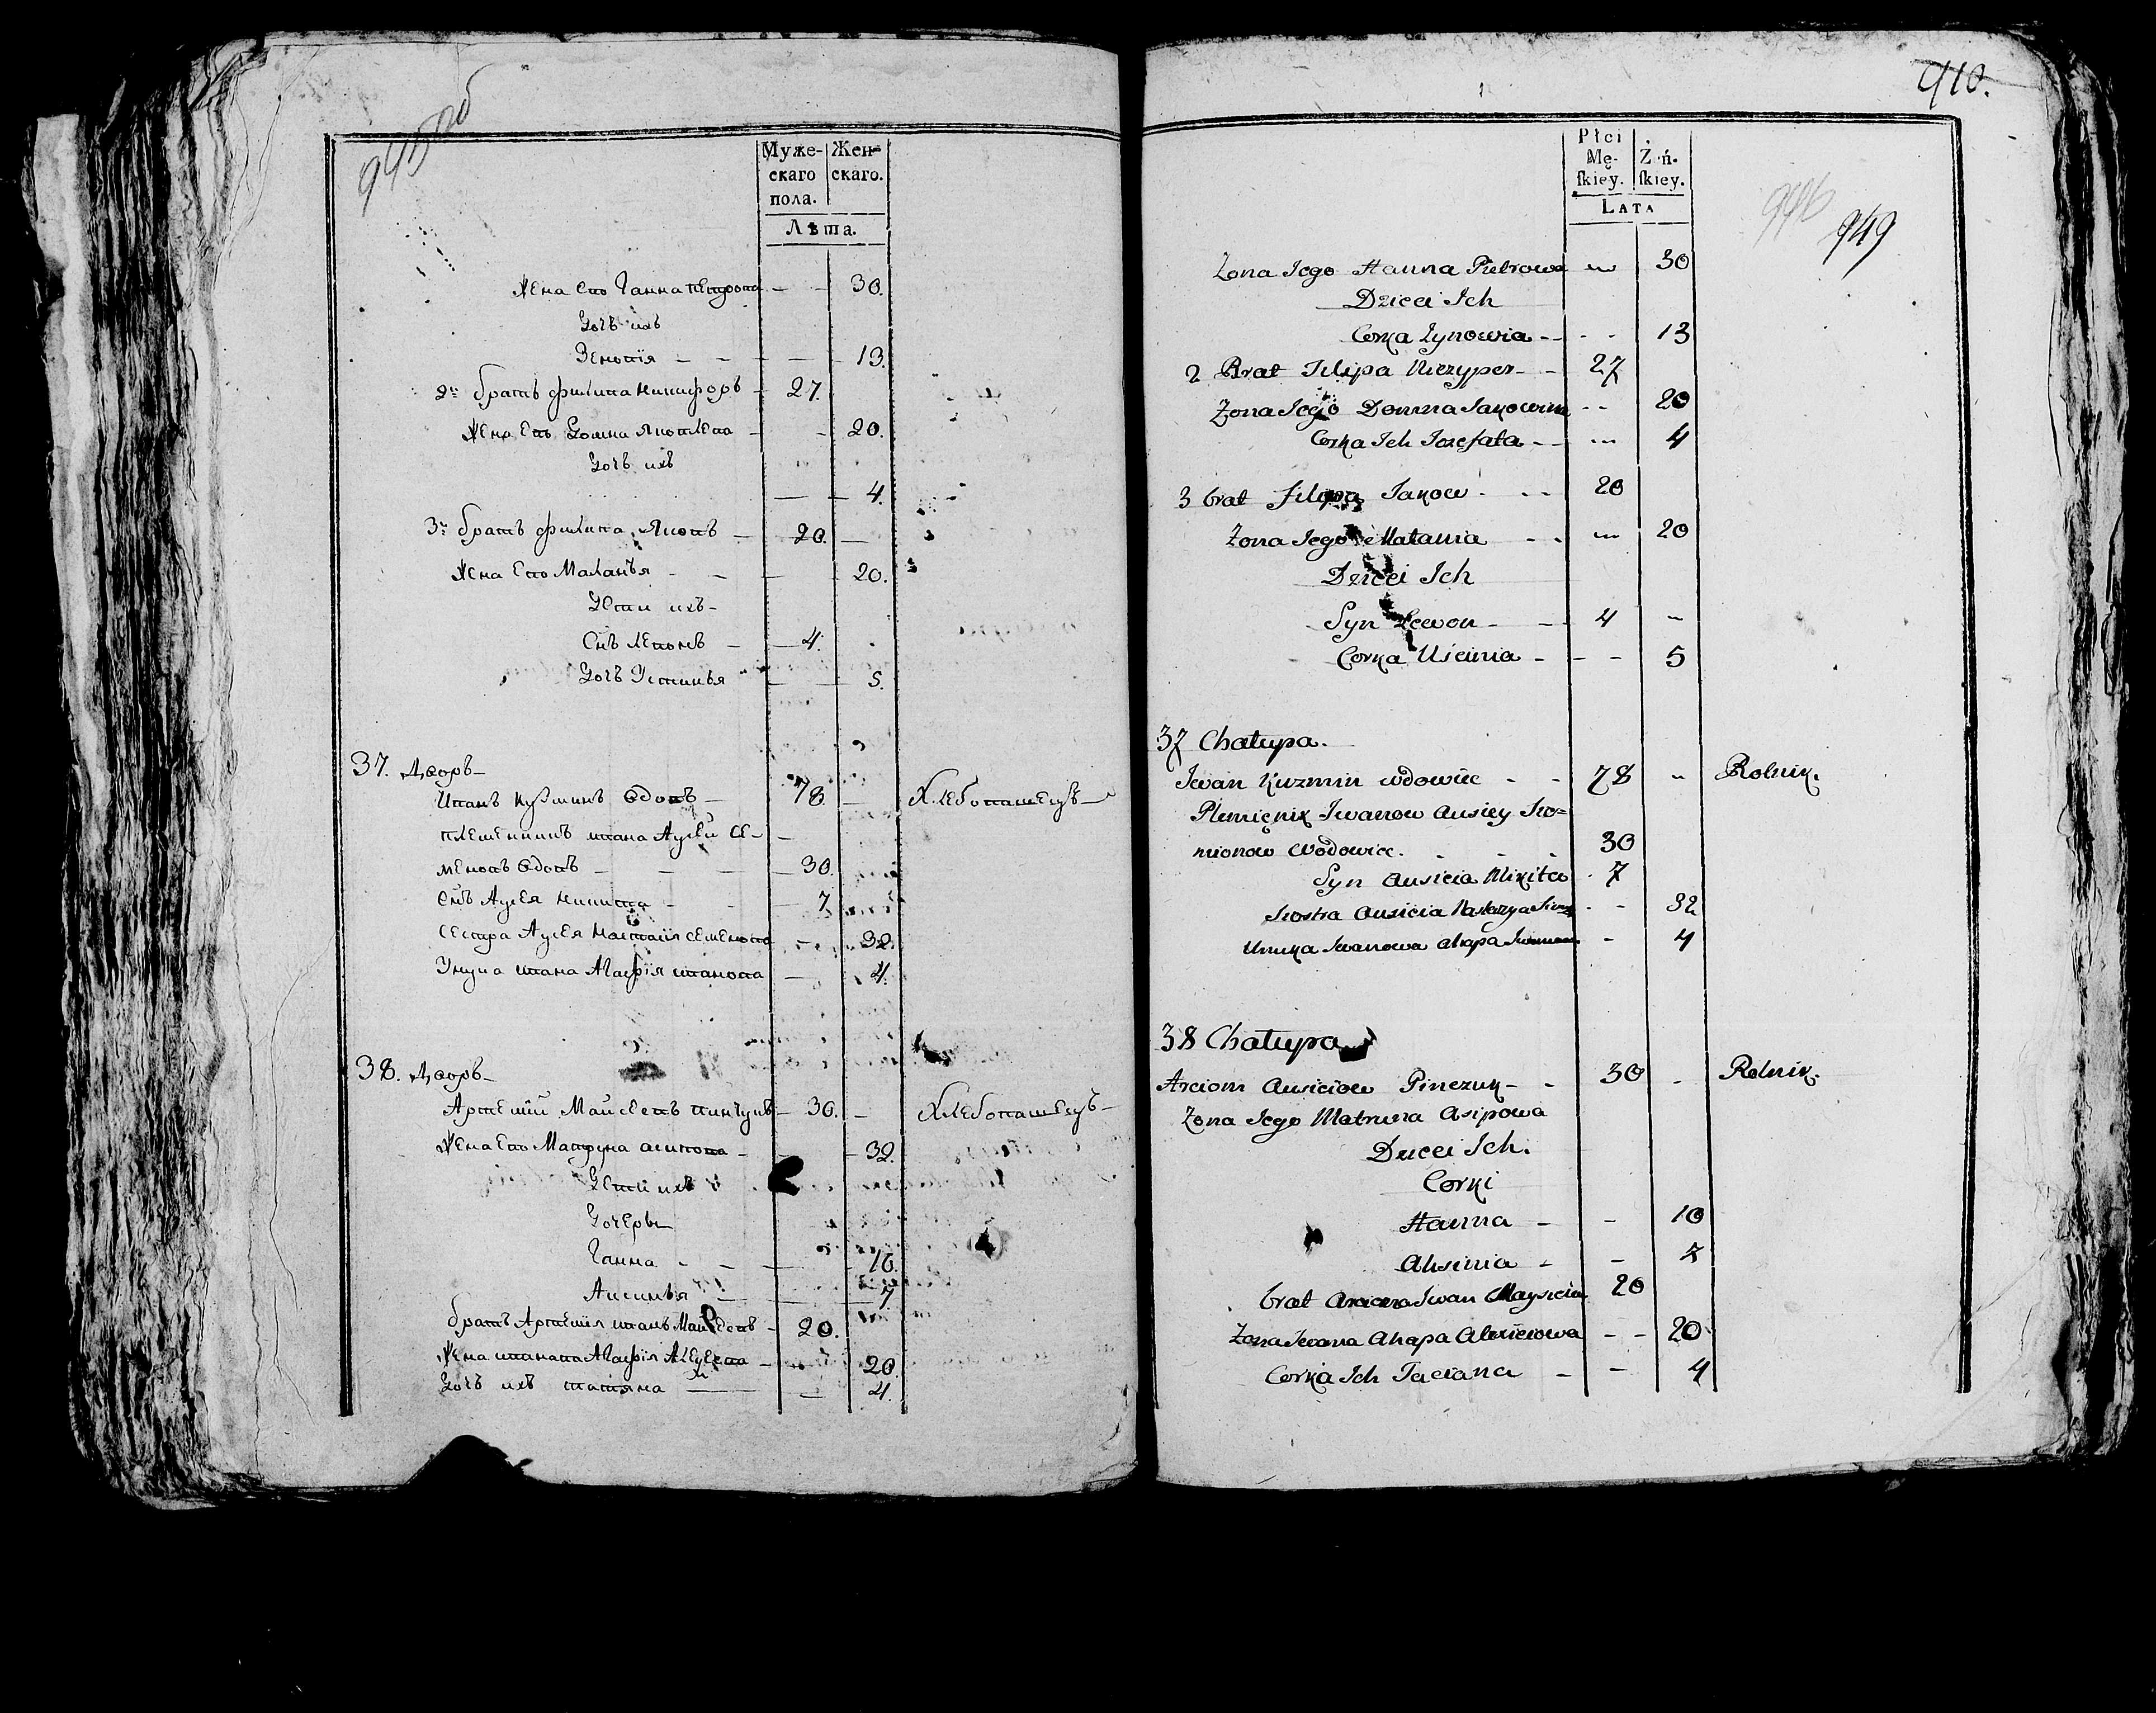 945 об
Муже- Жен-
скаго скаго.
пола.
Лѣта.
Жена его Ганна Петрова — — 30.
Дочь ихъ
Зеновія — — — — 13.
2й братъ Филипа Никифоръ — 27.
Жена его Домна Яковлева — — 20.
Дочь ихъ
— — 4.
3й братъ Филипа Яковъ — 20. —
Жена его Маланья — — — 20.
Дети ихъ —
Снъ Левонъ — — 4.
Дочь Устинья — — 5.
37. Дворъ —
Иванъ Кузминъ вдовъ — 78 — Хлебопашецъ —
племенникъ Ивана Аусей Се- —
меновъ вдовъ — — — — 30.
Снъ Аусея Никита — — — 7
Сестра Аусея Настасія Семенова — 32.
Унука Ивана Агафія Иванова — 4.
38. Дворъ —
Артемій Майсеевъ Пинчукъ — 30. — Хлебопашецъ —
Жена его Матруна Асипова — — 32.
Дети ихъ
Дочеры
Ганна — — — — 10.
Аксинья — — — 7
братъ Артемія Иванъ Майсеевъ — 20.
Жена Иванова Агафія — 20.
Дочь ихъ татяна — — 4.
910.
Płci
Mę- Ż ń.
ſkiey. ſkiey.
LATA
946 949
Zona Jego Hanna Pietrowa — 30
Dzieci Ich
Corka Zynowia - - - - 13
2 Brat Filipa Niczyper - - 27
Zona Jego Domna Jakowlewa - - 20
Corka Ich Jozefata - - — 4
3 brat Filipa Jakow - - - 20
Zona Jego Małania - - — 20
Dzieci Ich
Syn Lewon - - 4 -
Corka Uścinia - - - 5
37 Chałupa.
Iwan Kuzmin wdowiec - - 78 - Rolnik.
Plemięnik Iwanow Ausiey Sie=
mionow Wdowiec. - - - 30
Syn Ausieia Mikita - 7
Siostra Ausieia Nastazya - - 32
Unuka Iwanowa Ahapa - 4
38 Chałupa
Arciom Ausieiow Pinczuk - - 30 - Rolnik.
Zona Jego Matruna Asipowa
Dzieci Ich.
Corki
Hanna - - 10
Aksinia - - 7
brat Arciema Iwan Maysieia 20
Zona Iwana Ahapa - - 20
Corka Ich Taciana - - 4